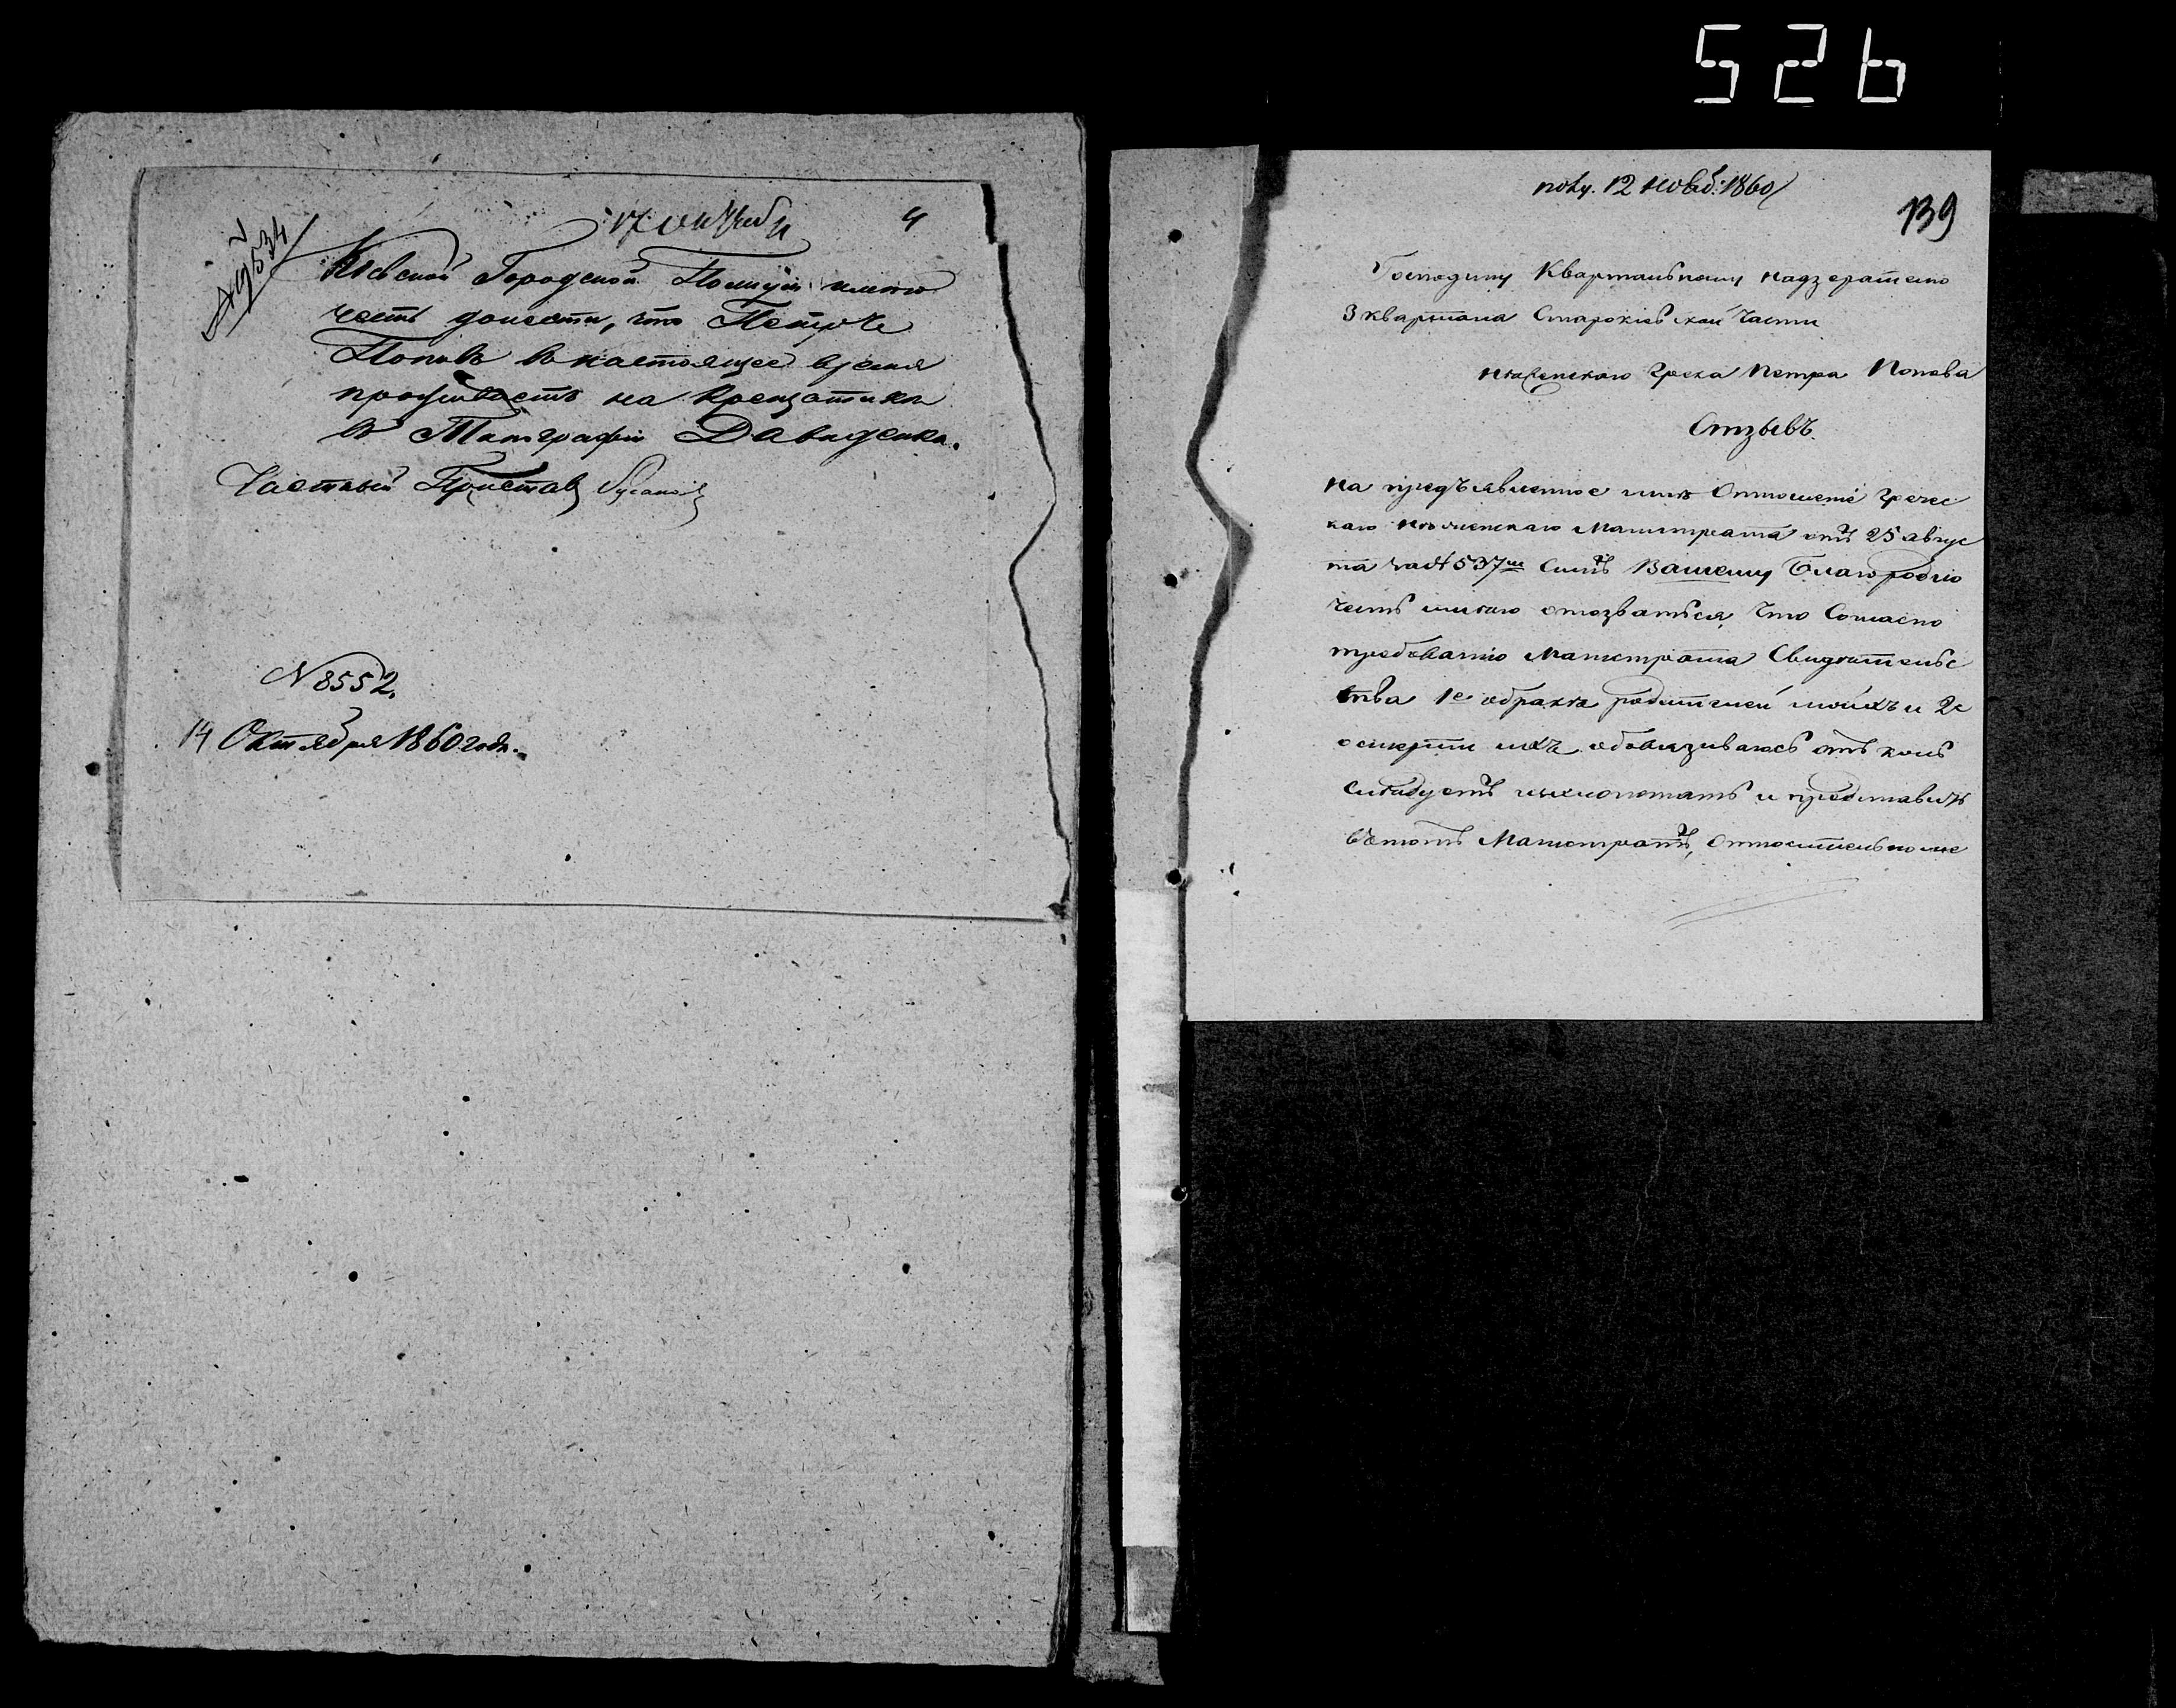 526
17 Октяб
4
№ 534
Кіевской Городской Полиціи имею
честь донести, что Петръ
Поповъ въ настоящее время
проживаетъ на Крещатике
въ Типографіи Давиденка.
Частный Приставъ
N 8552.
14 Октября 1860 года.
полу. 12 нояб. 1860
139
Господину Квартальному Надзерателю
3 квартала Старокіевской части
Нежинскаго Грека Петра Попова
Отзывъ.
на предъявленное мне Отношеніе Гречес
каго Нежинскаго Магистрата отъ 25 авгус
та за № 537 симъ Вашему Благородію
честь имею отозваться, что Согласно
требованію Магистрата Свидетельс
тва 1е о браке родителей моихъ и 2е
о смерти ихъ обовязываюсь отъ кого
следуетъ исхлопотать и представить
въ тотъ Магистратъ, Относительно же